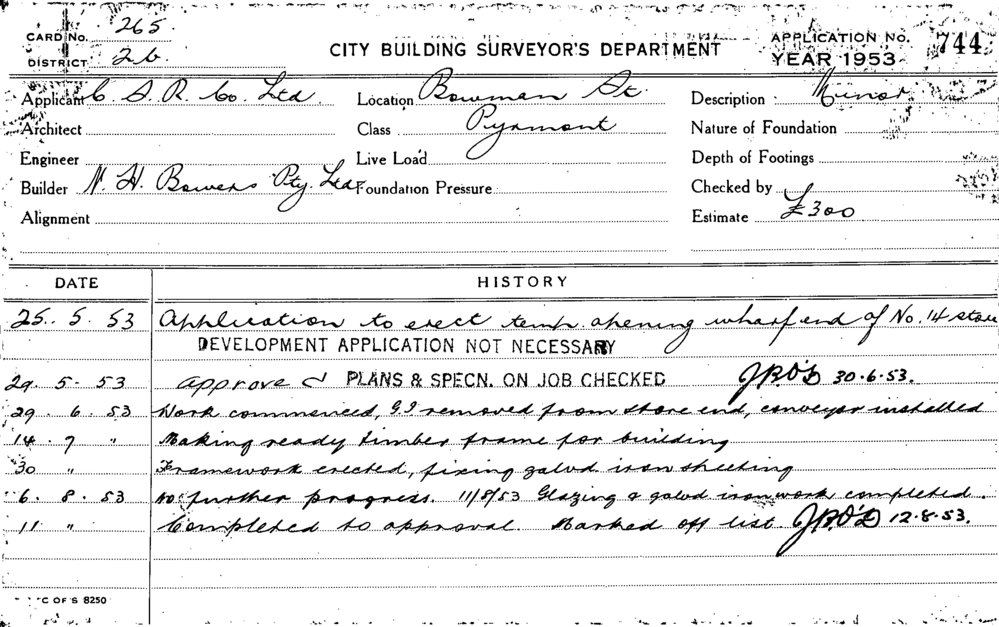 CARD No. 265
DISTRICT 26
CITY BUILDING SURVEYOR'S DEPARTMENT
APPLICATION No. 744
YEAR 1953
Applicant C. S. R. Co. Ltd. Location Bowman St. Description Minor
Architect Class Pyrmont Nature of Foundation
Engineer Live Load Depth of Footings
Builder N. H. Bowers Pty. Ltd. Foundation Pressure Checked by
Alignment Estimate £300
DATE HISTORY
25. 5. 53 Application to erect temp. opening wharf end of No. 14 store
DEVELOPMENT APPLICATION NOT NECESSARY
29. 5. 53 Approved PLANS & SPECN. ON JOB CHECKED 30.6.53.
29. 6. 53 Work commenced, GI removed from store end, conveyor installed
14. 7 " Making ready timber frame for building
30 " Framework erected, fixing galvd iron sheeting
6. 8. 53 No further progress. 11/8/53 Glazing & galvd ironwork completed.
11 " Completed to approval. Marked off list 12.8.53.
C OF S 8250